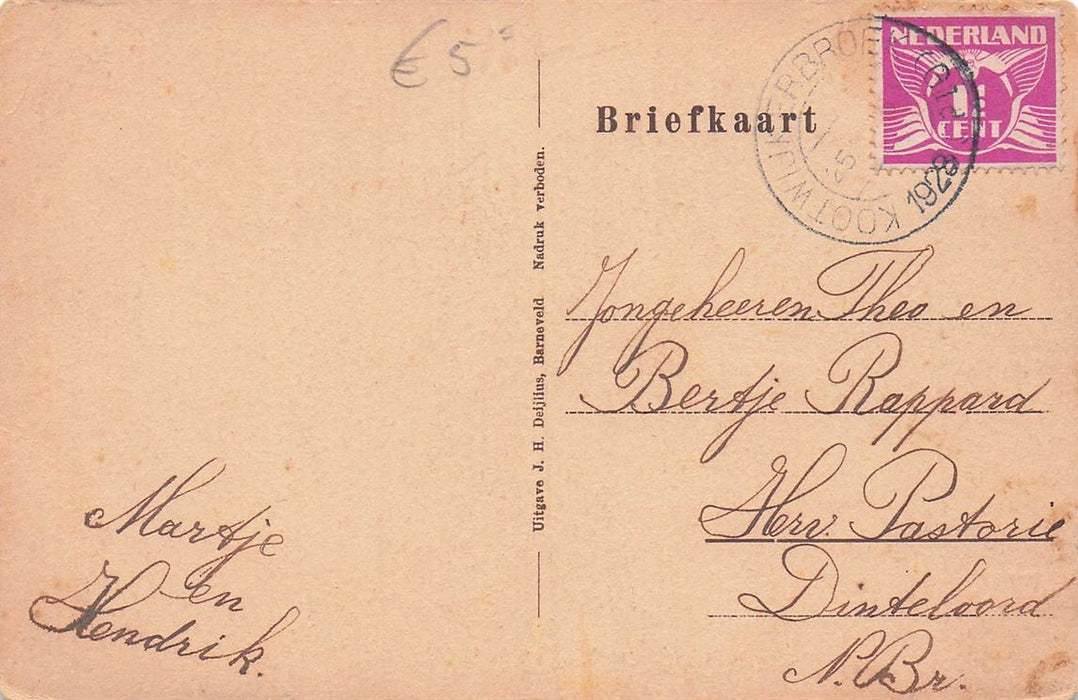 € 5
Briefkaart
NEDERLAND
1½
CENT
KOOTWIJKERBROEK
1928
Jongeheeren Theo en
Bertje Rappard
Herv. Pastorie
Dinteloord
N. Br.
Uitgave J. H. Deijlius, Barneveld Nadruk verboden.
Martje
en
Hendrik.